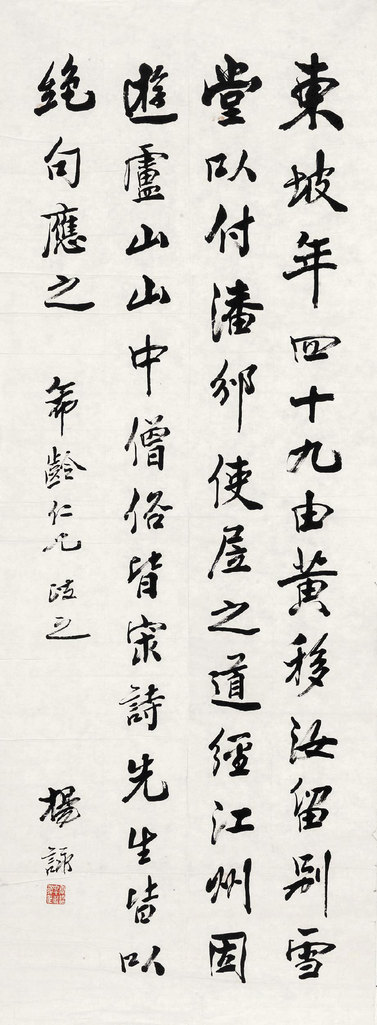 東坡年四十九由黃移汝留別雪
堂以付潘邠使居之道經江州因
遊廬山山中僧俗皆索詩先生皆以
絕句應之
希齡仁兄 政之
楊詠